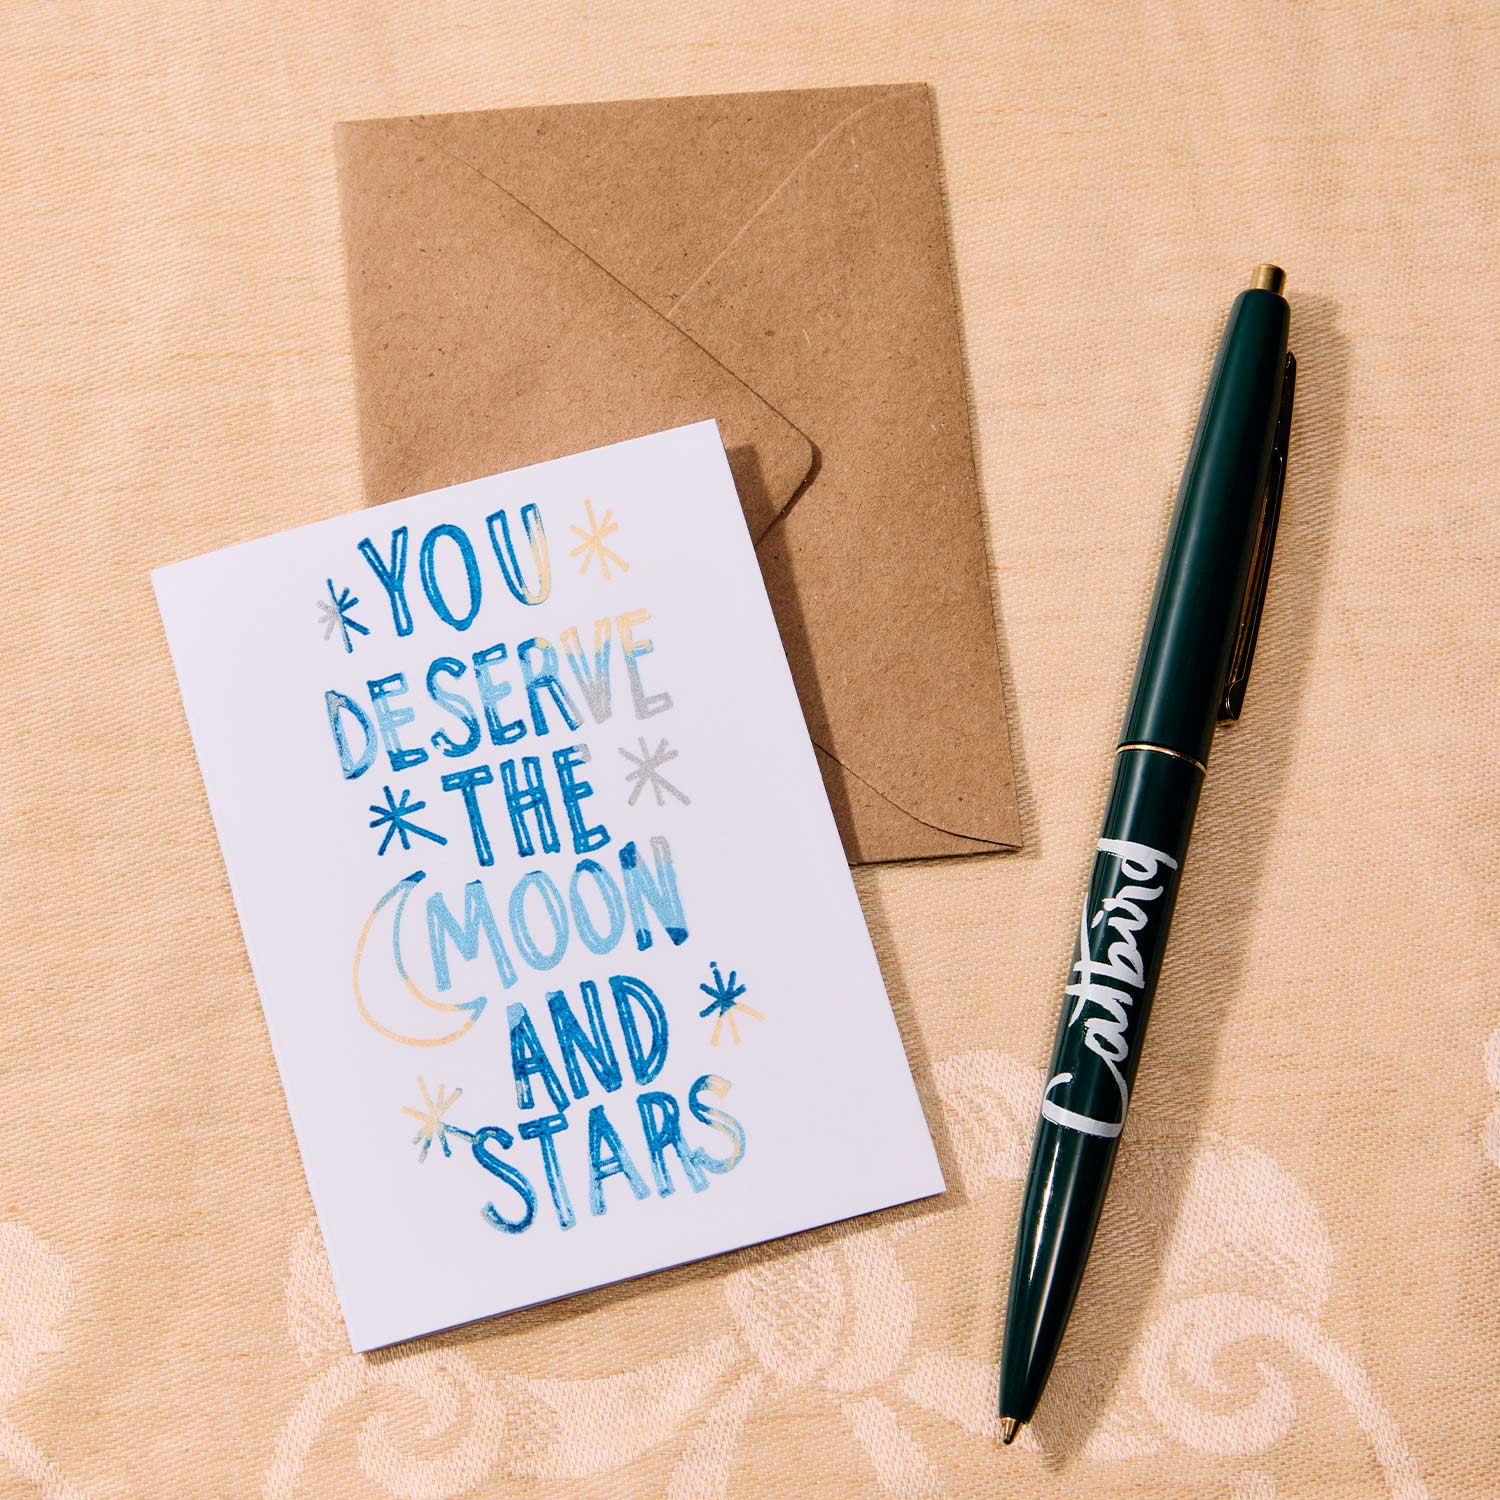 YOU
DESERVE
THE
MOON
AND
STARS
Catbird